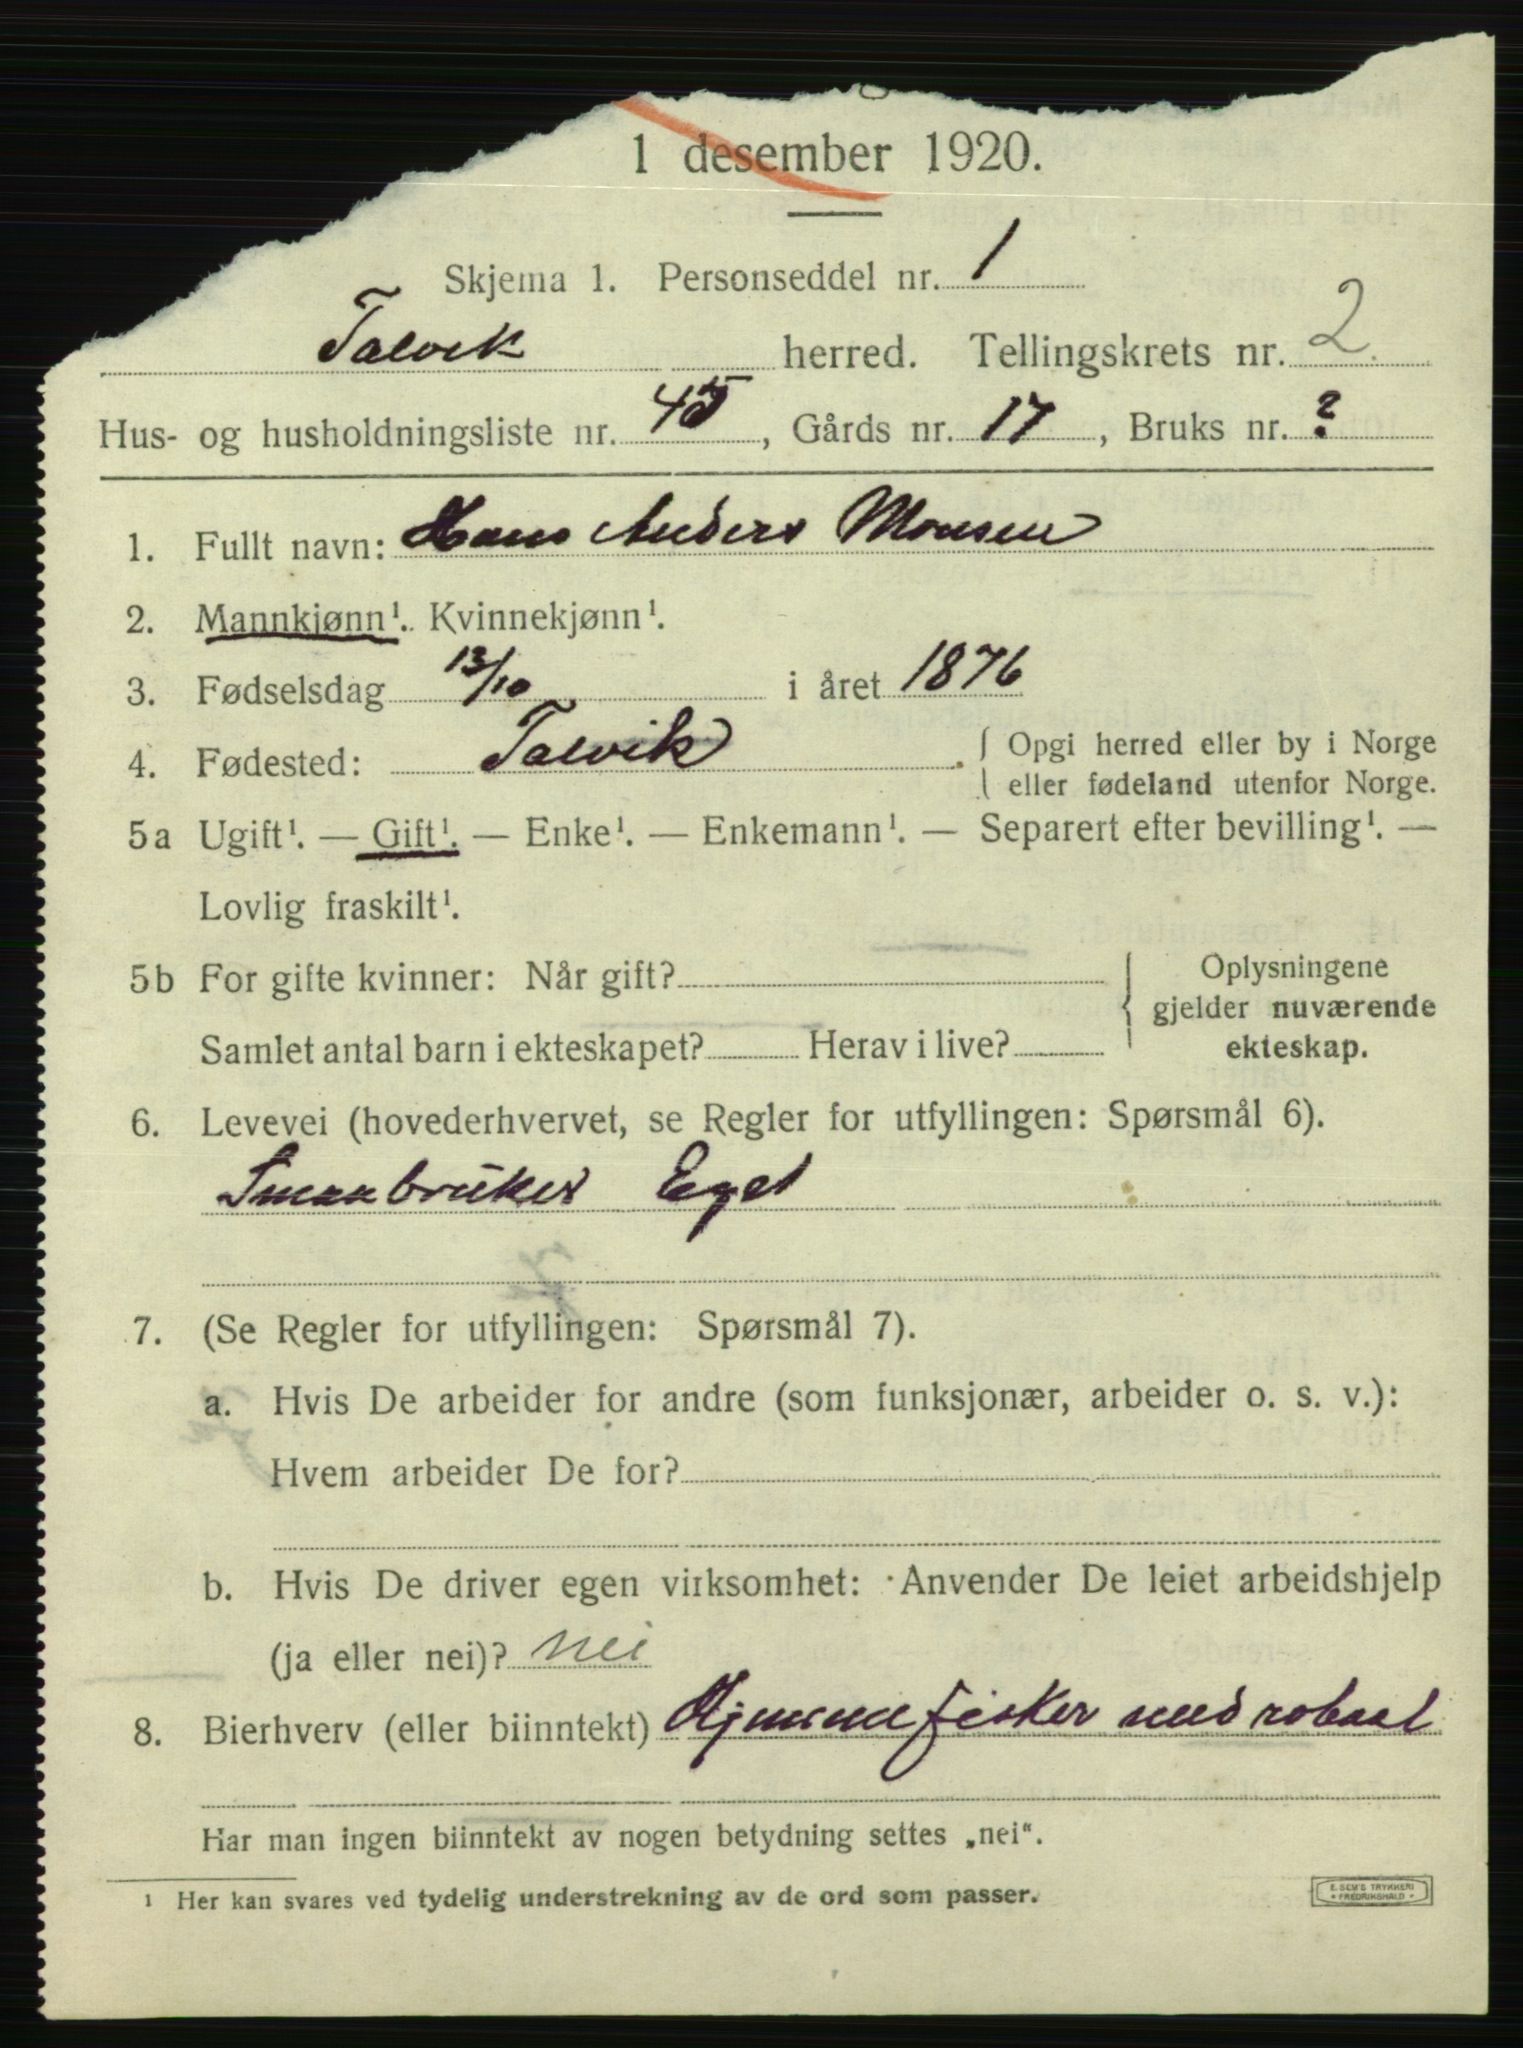 1 desember 1920.
Skjema 1. Personseddel nr. 1
Talvik herred. Tellingskrets nr. 2.
Hus- og husholdningsliste nr. 45, Gårds nr. 17, Bruks nr. ?
1. Fullt navn: Hans Anders Monsen
2. Mannkjønn¹. Kvinnekjønn¹.
3. Fødselsdag 13/10 i året 1876
4. Fødested: Talvik. { Opgi herred eller by i Norge
eller fødeland utenfor Norge.
5a Ugift¹. — Gift¹. — Enke¹. — Enkemann¹. — Separert efter bevilling¹. —
Lovlig fraskilt¹.
5b For gifte kvinner: Når gift? { Oplysningene
gjelder nuværende
Samlet antal barn i ekteskapet? Herav i live? ekteskap.
6. Levevei (hovederhvervet, se Regler for utfyllingen: Spørsmål 6).
Smaabruker Eget
7. (Se Regler for utfyllingen: Spørsmål 7).
a. Hvis De arbeider for andre (som funksjonær, arbeider o. s. v.):
Hvem arbeider De for?
b. Hvis De driver egen virksomhet: Anvender De leiet arbeidshjelp
(ja eller nei)? nei
8. Bierhverv (eller biinntekt) Hjemmefisker med robaat
Har man ingen biinntekt av nogen betydning settes „nei“.
¹ Her kan svares ved tydelig understrekning av de ord som passer.
E. SEM'S TRYKKERI
• FREDRIKSHALD •